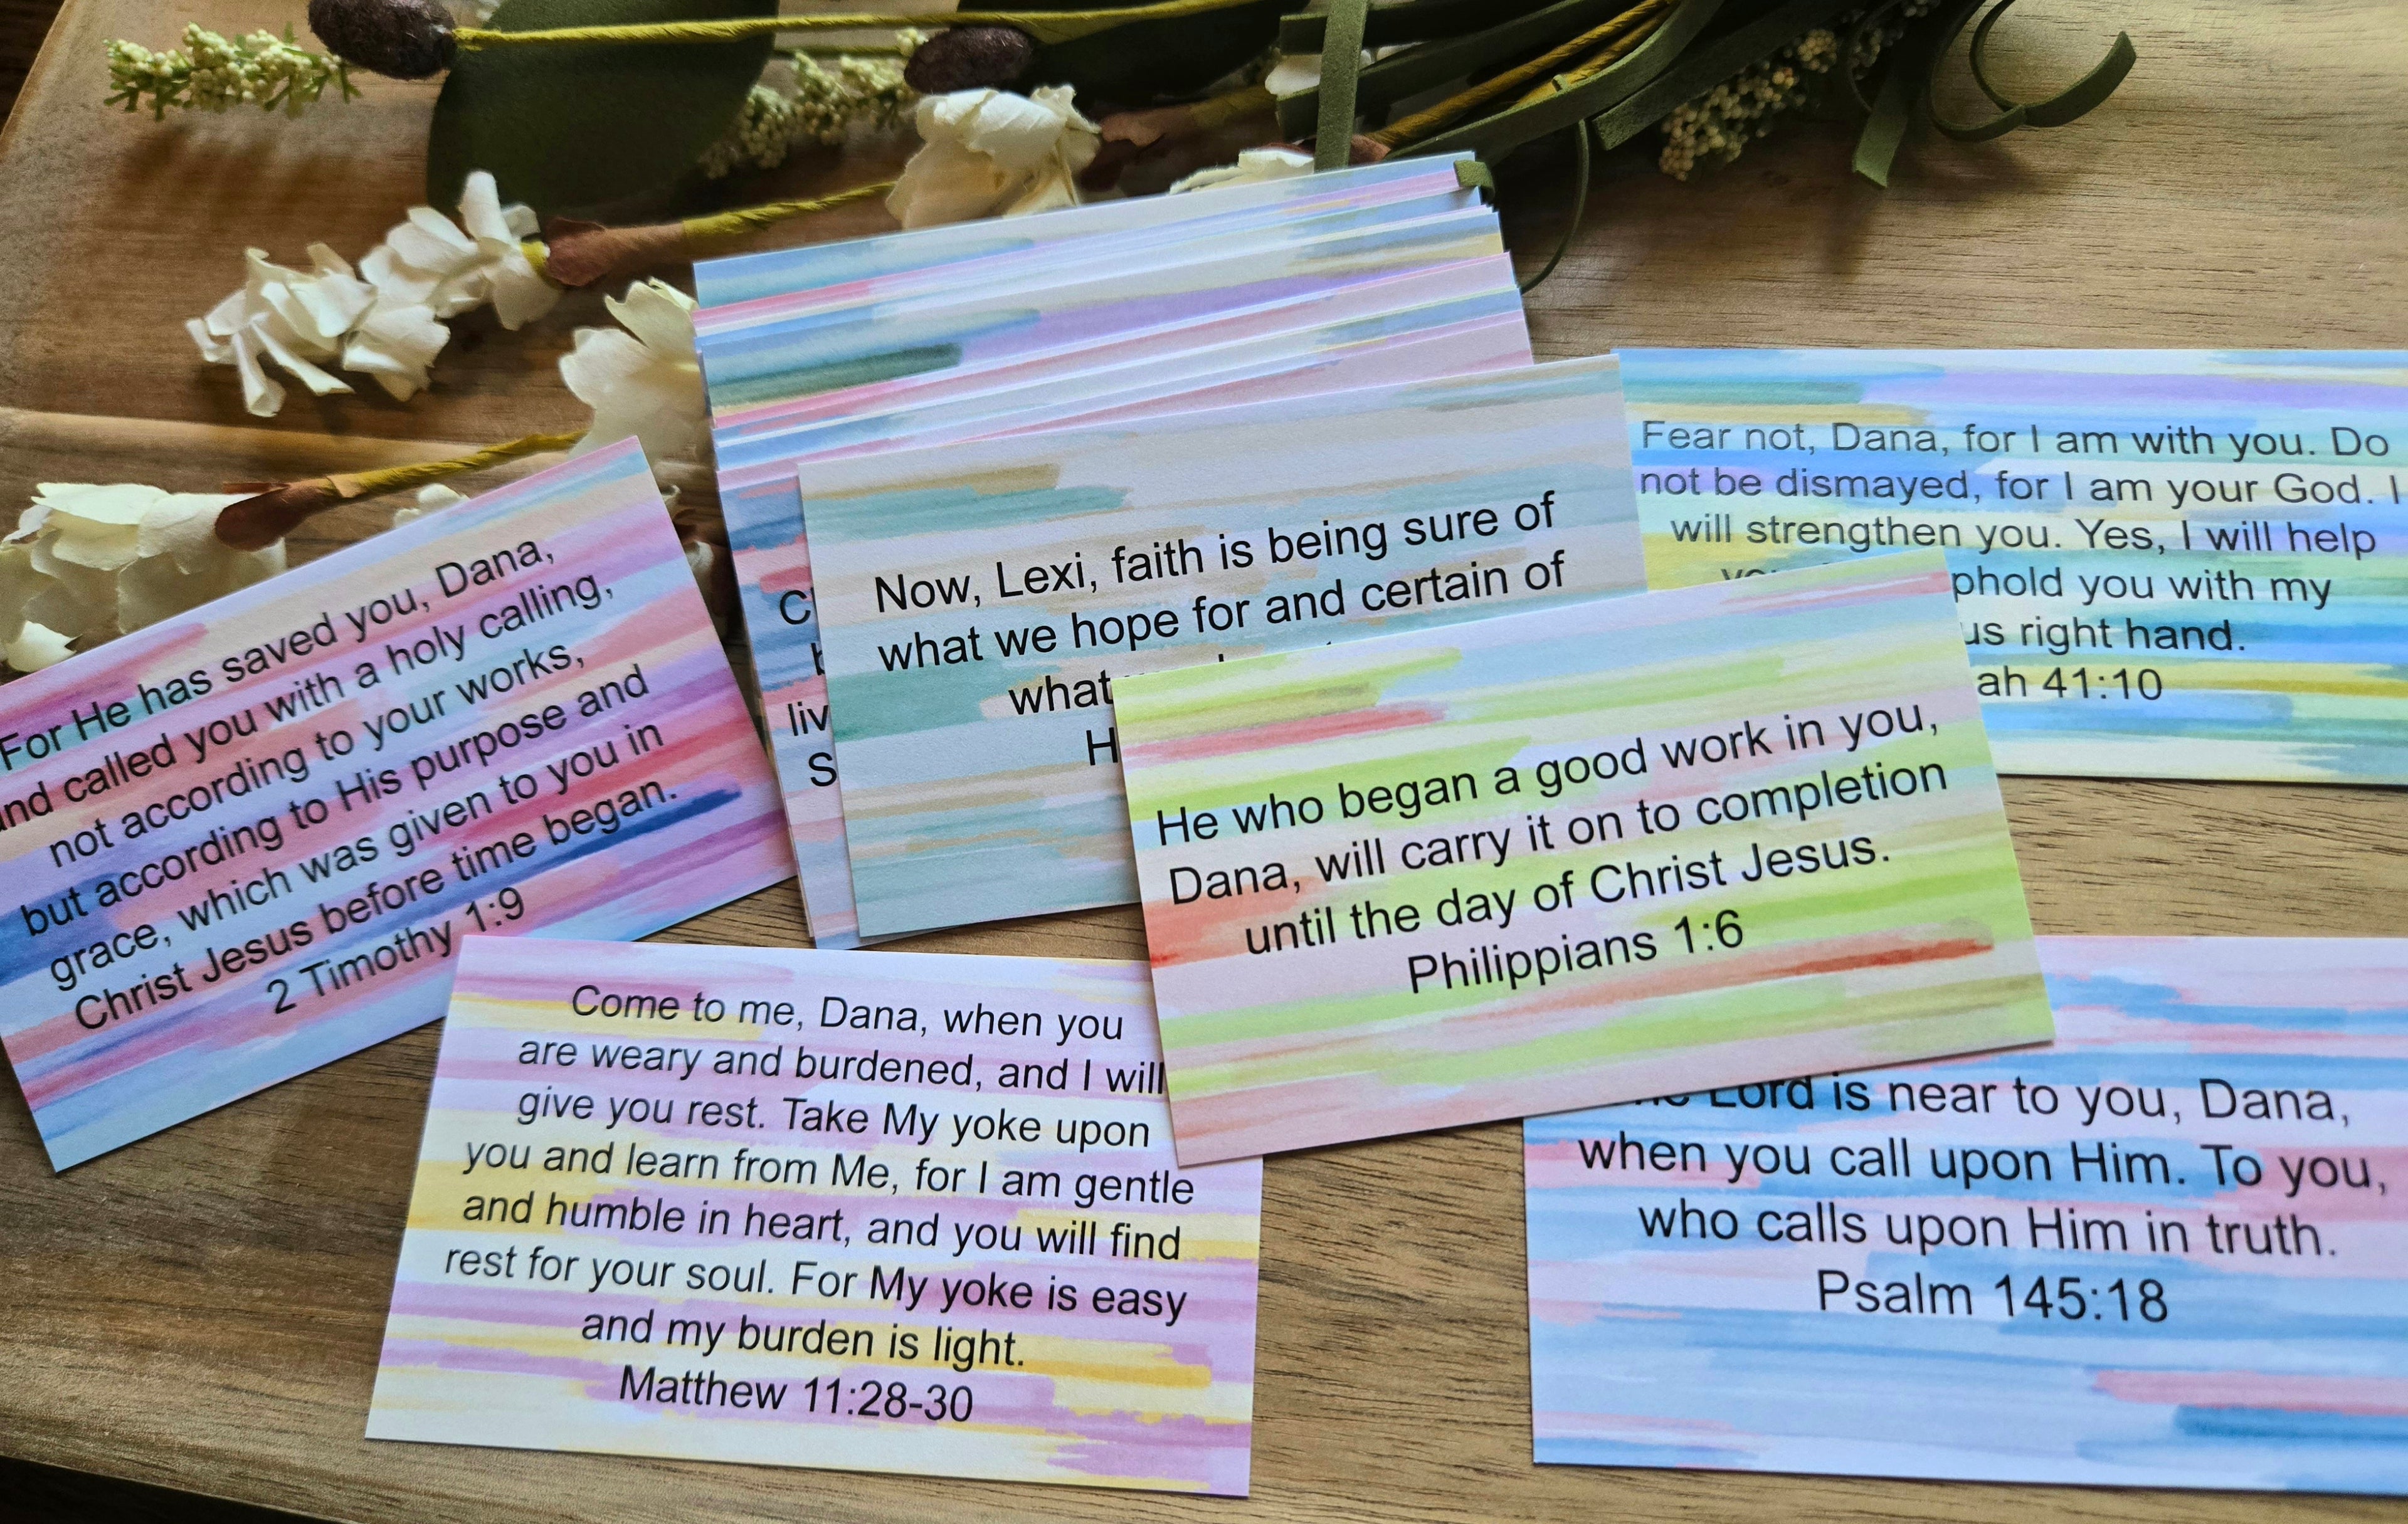 For He has saved you, Dana,
and called you with a holy calling,
not according to your works,
but according to His purpose and
grace, which was given to you in
Christ Jesus before time began.
2 Timothy 1:9
Now, Lexi, faith is being sure of
what we hope for and certain of
what
Fear not, Dana, for I am with you. Do
not be dismayed, for I am your God. I
will strengthen you. Yes, I will help
you with my
right hand.
41:10
He who began a good work in you,
Dana, will carry it on to completion
until the day of Christ Jesus.
Philippians 1:6
Come to me, Dana, when you
are weary and burdened, and I will
give you rest. Take My yoke upon
you and learn from Me, for I am gentle
and humble in heart, and you will find
rest for your soul. For My yoke is easy
and my burden is light.
Matthew 11:28-30
Lord is near to you, Dana,
when you call upon Him. To you,
who calls upon Him in truth.
Psalm 145:18